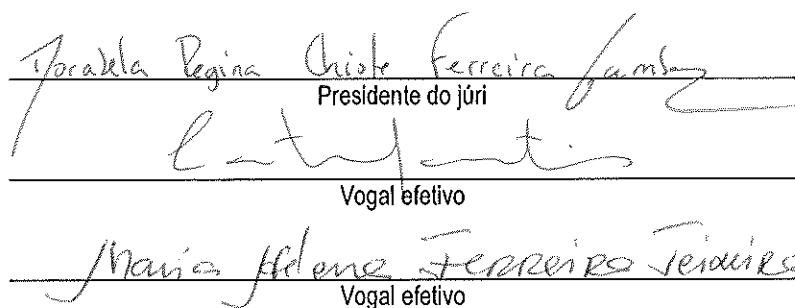 Regina Chiote Ferreira
Presidente do júri
Vogal efetivo
Maria Helena Ferreira Teixeira
Vogal efetivo